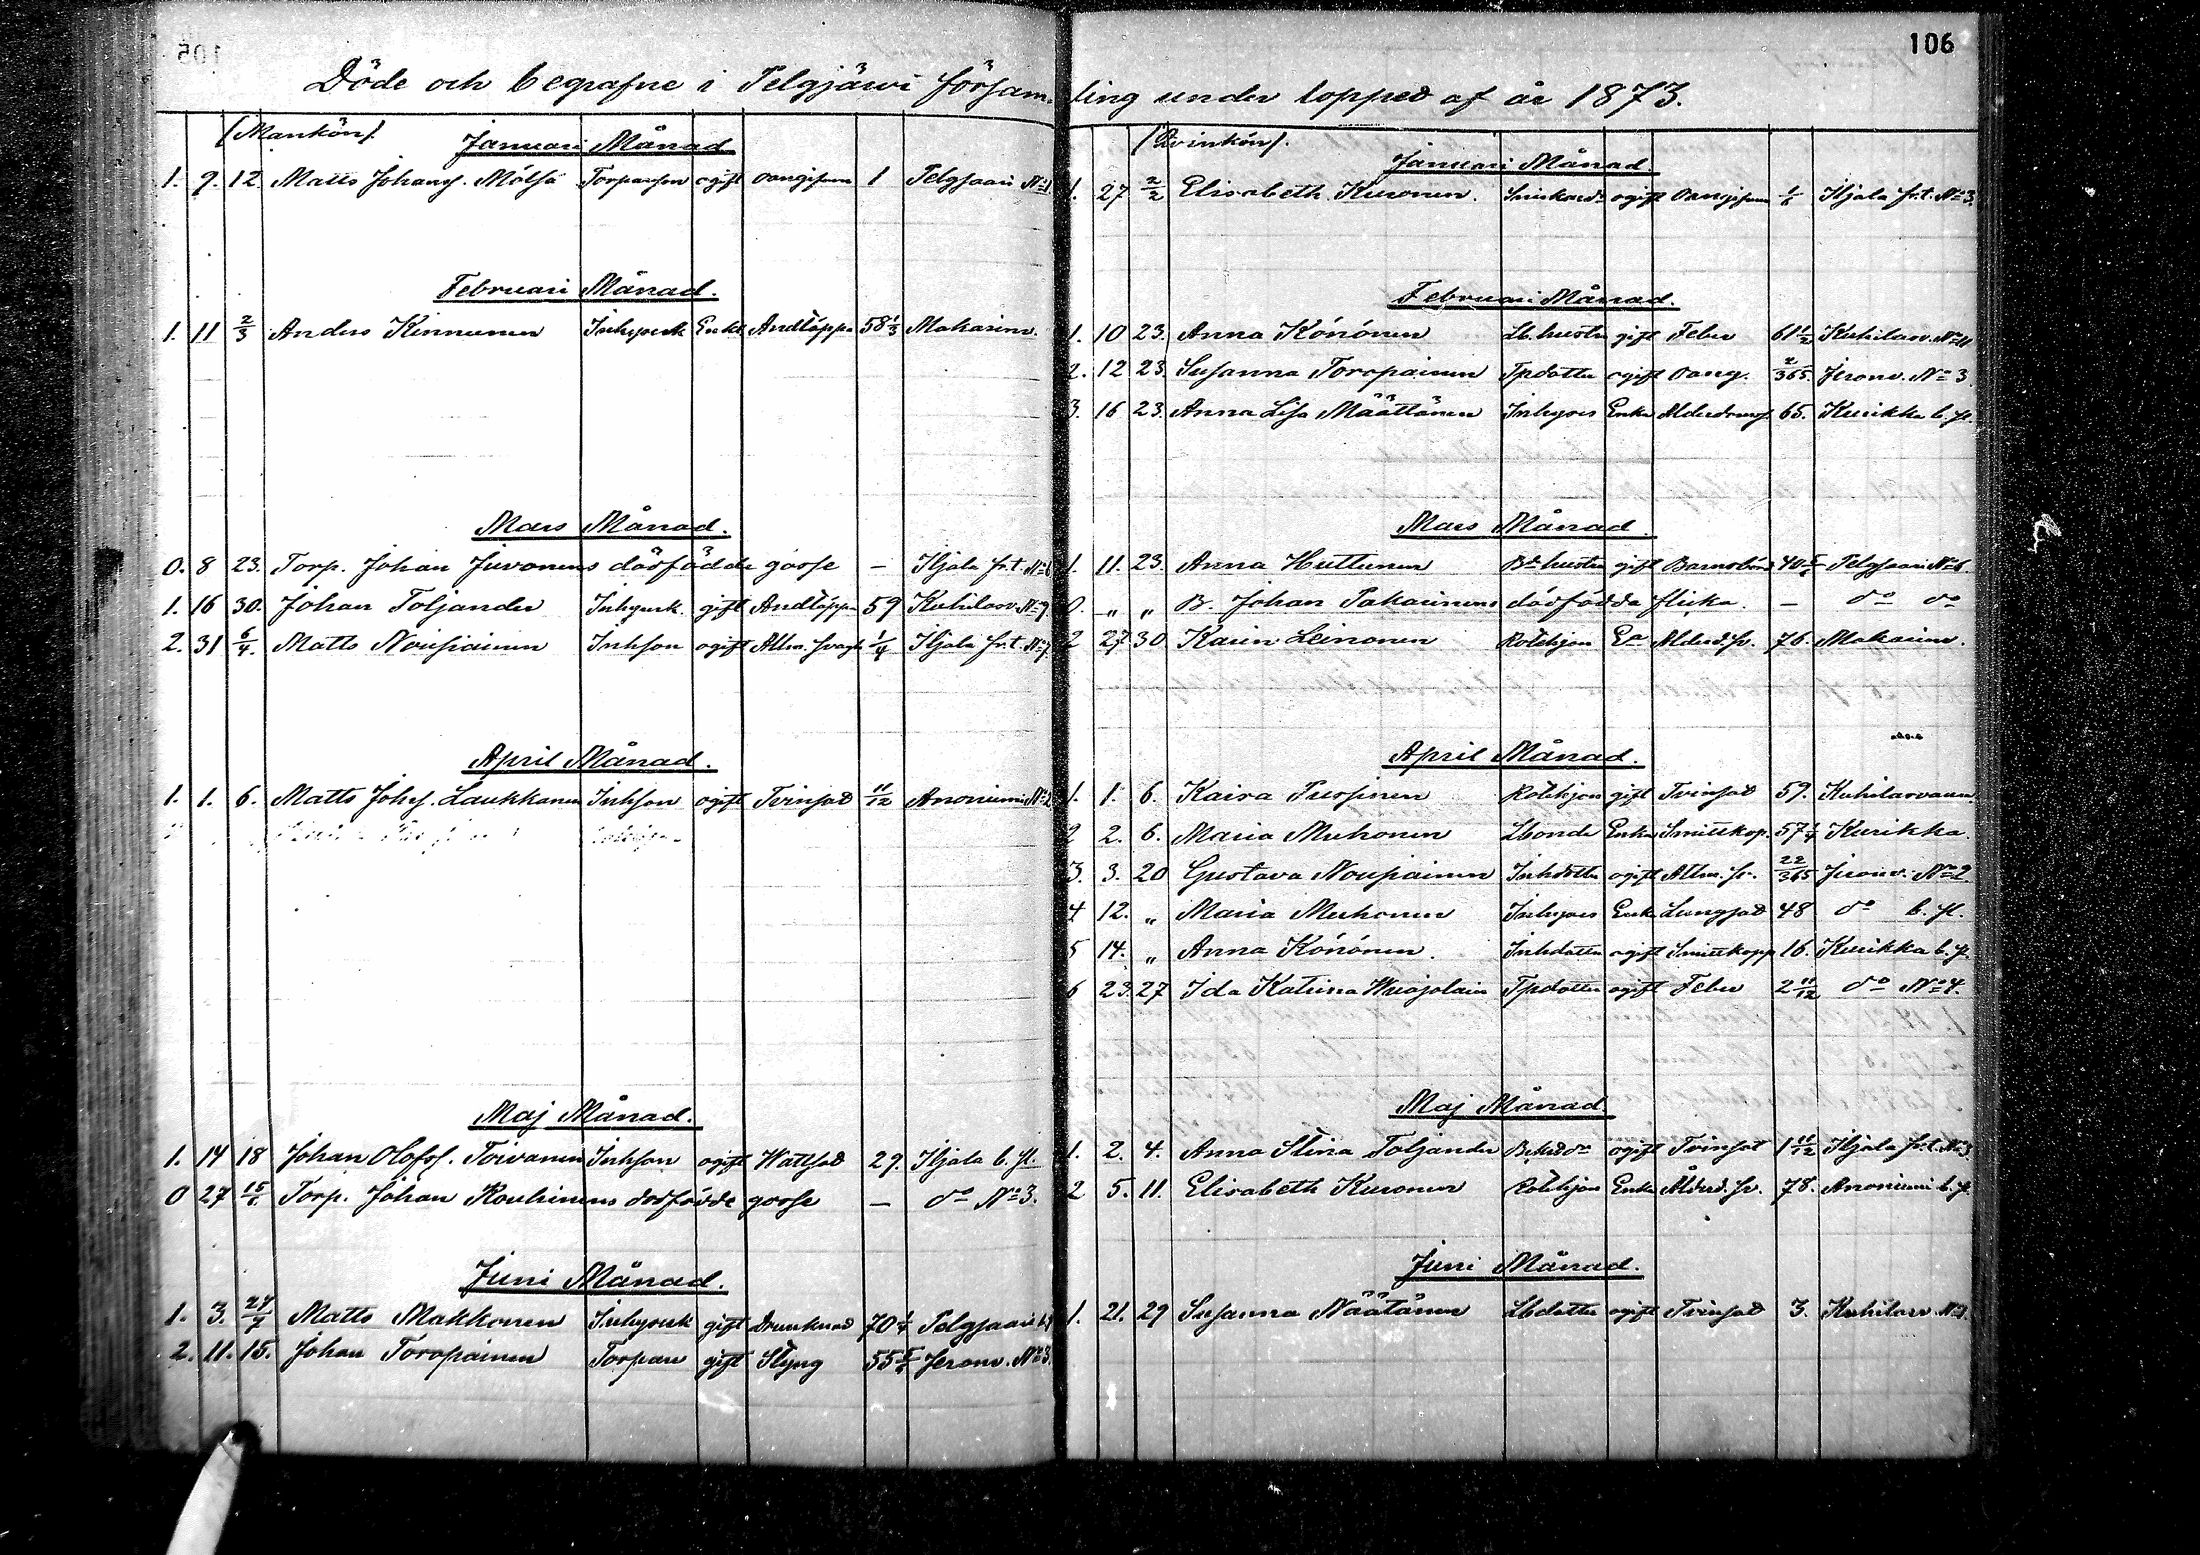 106
Döde och begrafne i Pelgjärvi församling under loppet af år 1873.
(Mankön).
Januari Månad
1. 9. 12 Matts Johanss. Mölsä Torparson ogift oangifven 1 Pelgjaari № 1
Februari Månad.
1. 11 2/3 Anders Kinnunen Inhysesk Enkl Andtäppa 58 1/3 Makarinv.
Mars Månad.
0. 8 23. Torp. Johan Juvonens dödfödde gosse — Iljala fr.t. № 6
1. 16 30. Johan Toljander Inhysesk. gift Andtäppa 59 Kuhilasv. № 9
2. 31 6/4. Matts Nousiainen Inhson ogift Allm. svagh 1/4 Iljala fr.t. № 7
April Månad.
1. 1. 6. Matts Johss. Laukkanen Inhson ogift Tvinsot 11/12 Anoniemi № 2
Maj Månad.
1. 14 18 Johan Olofss. Toivanen Inhson ogift Wattsot 29. Iljala b. fl.
0 27 15/6. Torp. Johan Rouhinens dödfödde gosse — do № 3.
Juni Månad.
1. 3. 27/7 Matts Makkonen Inhysesk gift Drunknad 70 1/4 Pelgjaari
2. 11. 15. Johan Toropainen Torpare gift Styng 55 Jeronv. № 3.
(Qvinkön).
Januari Månad.
1. 27 2/2 Elisabeth Kuronen. ogift Oangifven Iljala fr.t. № 3.
Februari Månad.
1. 10 23. Anna Könönen Lb. hustru gift Feber 61 1/2 Kuhilasv. № 11
2. 12 23. Susanna Toropainen Tpdotter ogift Oang. 2/365. Jeronv. № 3.
3. 16 23. Anna Lisa Määttänen Inhyses Enka Ålderdomss. 65. Kurikka b. fl.
Mars Månad.
1. 11. 23. Anna Huttunen Bd hustru gift Barnsbörd 40 Pelgjaari № 6.
0. „ „ B. Johan Pakarinens dödfödda flicka. — do do
2 27. 30. Karin Leinonen Rotehjon Ea Ålderd. sv. 76. Makarinv.
April Månad.
1. 1. 6. Kaisa Pursinen Rotehjon gift Tvinsot 59. Kuhilasvaara.
2 2. 6. Maria Muhonen Lbonde Enka Smittkop. 57 1/4 Kurikka.
3. 3. 20 Gustava Nousiainen Inhdotter ogift Allm. sv. 22/365 Jeronv. № 2.
4 12. „ Maria Muhonen Inhyses Enk Lungsot 48 do b. fl.
5 14. „ Anna Könönen. Inhdotter ogift Smittkopp 16. Kurikka b. fl.
6 23. 27 Ida Katrina Wuojolain Tpdotter ogift Feber 2 11/12 do № 4.
Maj Månad
1. 2. 4. Anna Stina Toljander ogift Tvinsot 1 11/12 Iljala fr.t. № 3
2 5. 11. Elisabeth Kuronen Rotehjon Enka Ålderd. sv. 78. Anoniemi b. fl.
Juni Månad.
1. 21. 29 Susanna Näätänen Lbdotter ogift Tvinsot 3. Kuhilasv. № 3.